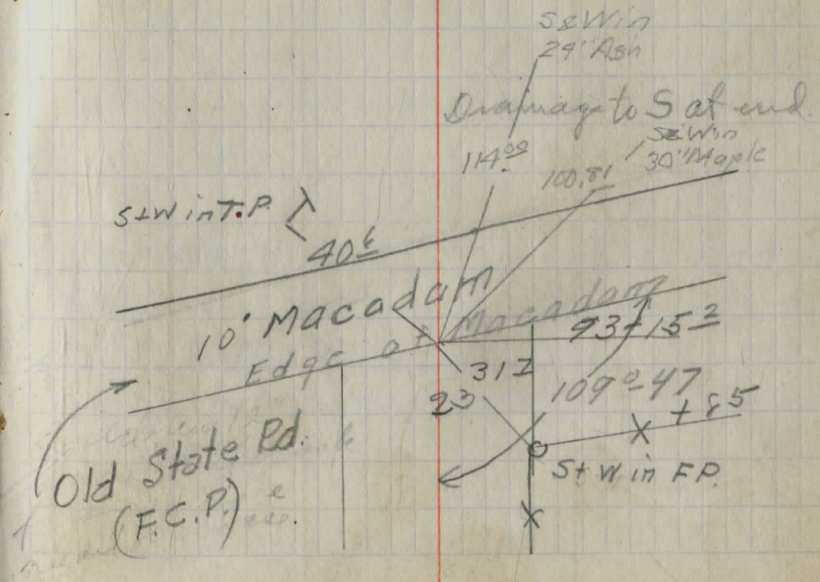 S&Win
24" Ash
Drainage to S at end.
S&Win
30" Maple
114.00
100.81
S+W in T.P.
40 6
10' Macadam
Edge of Macadam
93+15 2
31 2
23
109°-47
+85
S+W in F.P.
Old State Rd.
(F.C.P.)